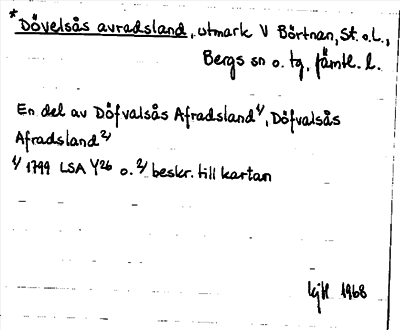 *Dövelsås avradsland, utmark V Börtnan, St. o. L.,
Bergs sn o. tg, Jämtl. l.
En del av Döfvalsås Afradsland¹⁄, Döfvalsås
Afradsland²⁄
¹⁄ 1799 LSA Y26 o. ²⁄ beskr. till kartan
1968